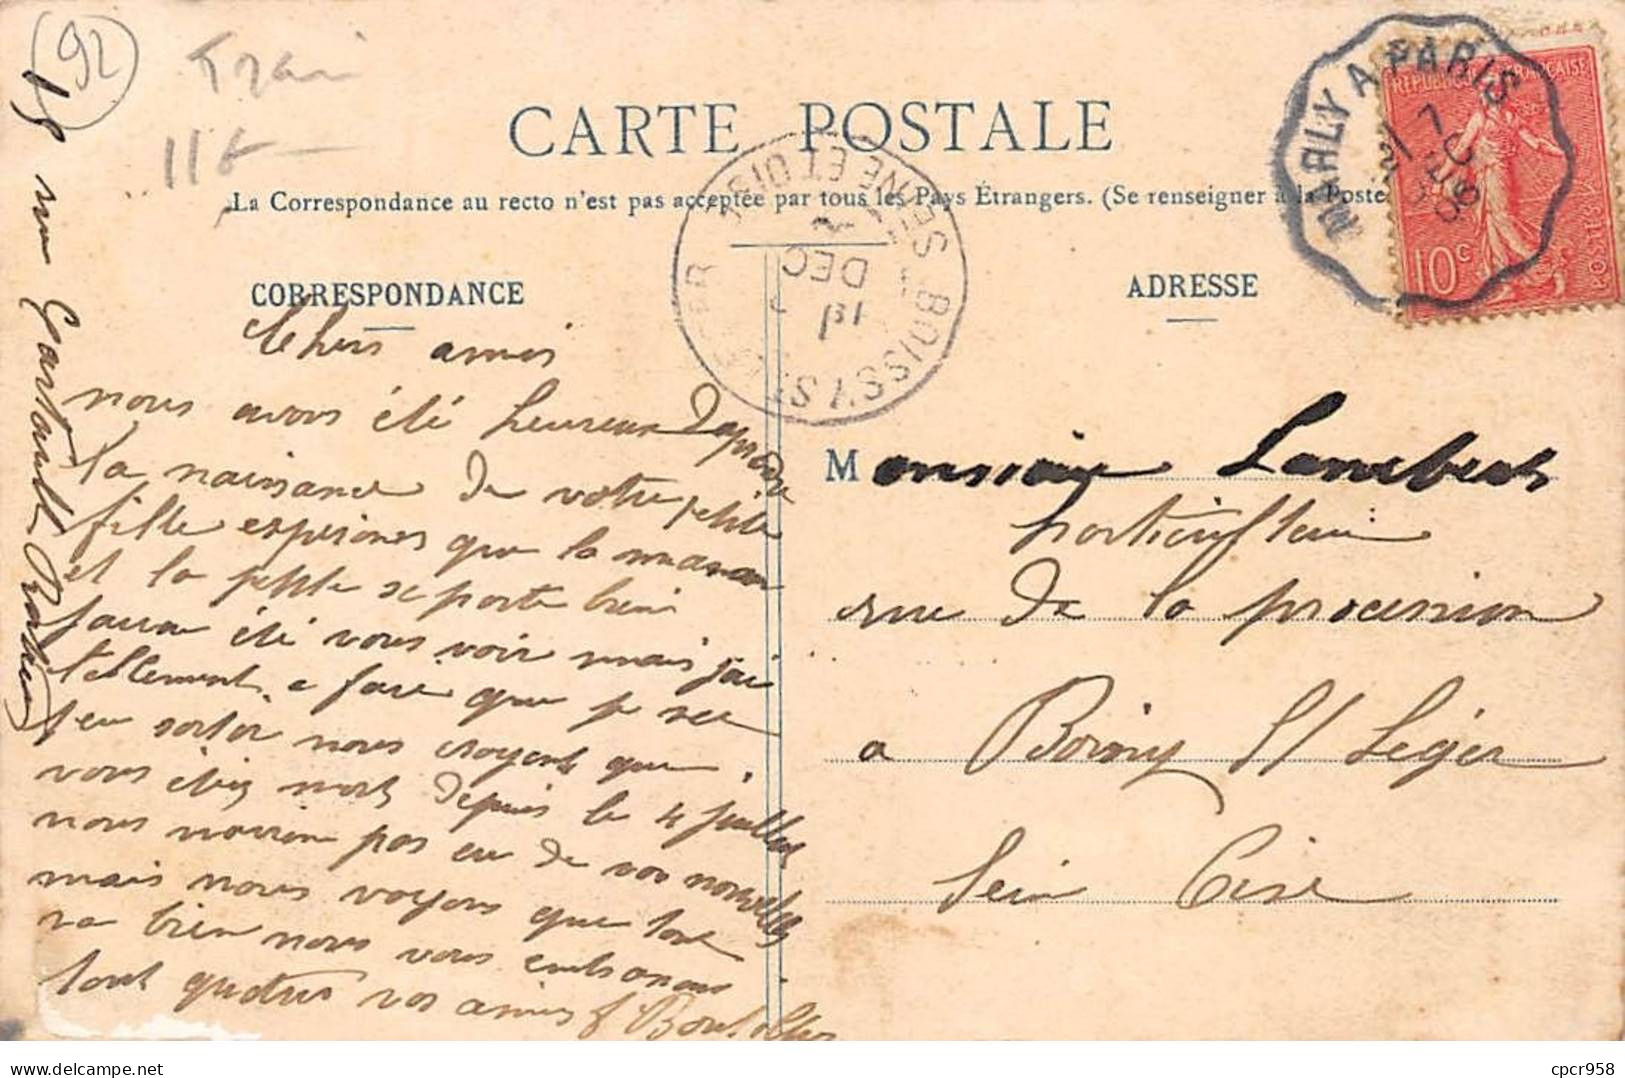 92
Train
CARTE POSTALE
La Correspondance au recto n'est pas acceptée par tous les Pays Étrangers. (Se renseigner à la Poste
MARLY A PARIS
DEC
06
RÉPUBLIQUE FRANÇAISE
POSTES
10c
BOISSY-ST-LEGER
SEINE ET OISE
DEC
CORRESPONDANCE
ADRESSE
Chers amis
nous avons été heureux d'apprendre
la naissance de votre petite
fille esperones que la maman
et la petite se porte bien
été vous voir mais j'ai
tellement a faire que je ne
peu sortir nous croyent que
vous étiez mort depuis le 4 juillet
nous n'avion pas eu de vos nouvelles
mais nous voyons que tout
va bien nous vous embrassons
tout quatres vos amis
Monsieur Lambert
horticulteur
rue de la procession
a Boissy St Léger
Seine Oise
15 rue
cpcr958